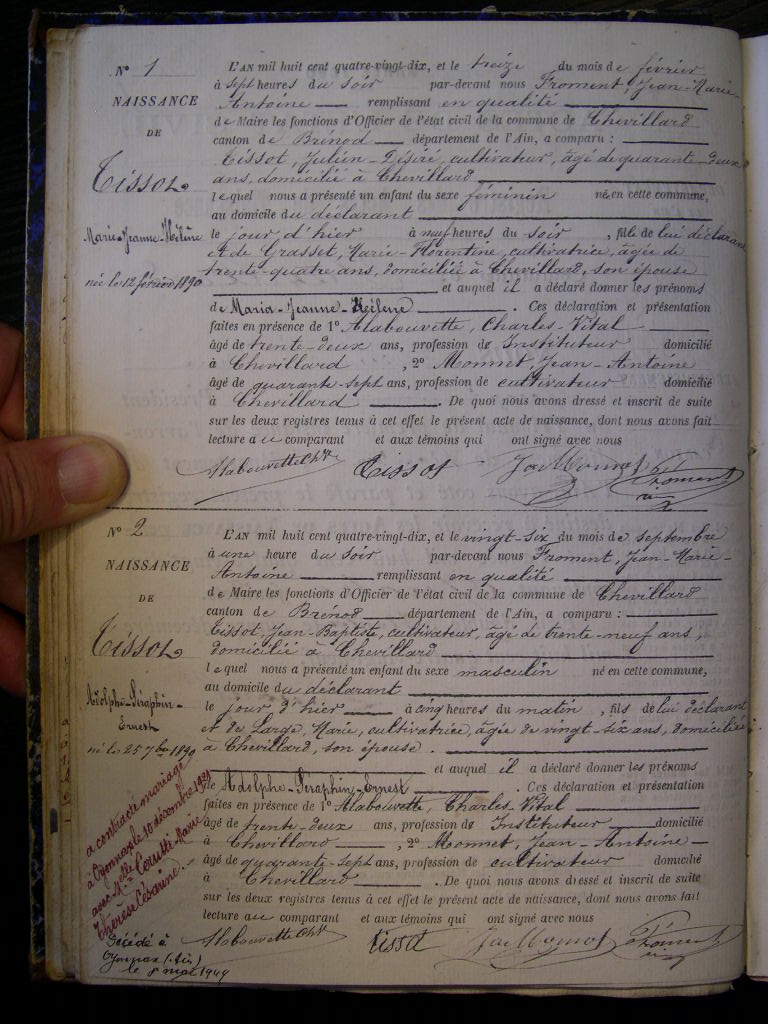 N° 1
NAISSANCE
DE
Tissot
Marie-Jeanne-Hélène
née le 12 février 1890
L'AN mil huit cent quatre-vingt-dix, et le treize du mois de février
à sept heures du soir par-devant nous Froment, Jean-Marie-
Antoine remplissant en qualité
de Maire les fonctions d'Officier de l'état civil de la commune de Chevillard
canton de Brénod département de l'Ain, a comparu :
Tissot, Julien-Désiré, cultivateur, âgé de quarante-deux
ans, domicilié à Chevillard
lequel nous a présenté un enfant du sexe féminin né, en cette commune,
au domicile du déclarant
le jour d'hier à neuf heures du soir, fille de lui déclarant
et de Grasset, Marie-Florentine, cultivatrice, âgée de
trente-quatre ans, domiciliée à Chevillard, son épouse
et auquel il a déclaré donner les prénoms
de Maria-Jeanne-Hélène. Ces déclaration et présentation
faites en présence de 1° Alabouvette, Charles-Vital
âgé de trente-deux ans, profession de Instituteur domicilié
à Chevillard, 2° Monnet, Jean-Antoine
âgé de quarante-sept ans, profession de cultivateur domicilié
à Chevillard. De quoi nous avons dressé et inscrit de suite
sur les deux registres tenus à cet effet le présent acte de naissance, dont nous avons fait
lecture au comparant et aux témoins qui ont signé avec nous
Alabouvette Ch. V. Tissot Jn Monnet Froment
N° 2
NAISSANCE
DE
Tissot
Adolphe-Séraphin-
Ernest
né le 25 7bre 1890
a contracté mariage
à Oyonnax le 10 décembre 1921
avec Melle Marie
Thérèse Césarine.
Décédé à
Oyonnax (Ain)
le 8 mai 1944
L'AN mil huit cent quatre-vingt-dix, et le vingt-six du mois de septembre
à une heure du soir par-devant nous Froment, Jean-Marie-
Antoine remplissant en qualité
de Maire les fonctions d'Officier de l'état civil de la commune de Chevillard
canton de Brénod département de l'Ain, a comparu :
Tissot, Jean-Baptiste, cultivateur, âgé de trente-neuf ans,
domicilié à Chevillard
lequel nous a présenté un enfant du sexe masculin né en cette commune,
au domicile du déclarant
le jour d'hier à cinq heures du matin, fils de lui déclarant
et de Large, Marie, cultivatrice, âgée de vingt-six ans, domiciliée
à Chevillard, son épouse.
et auquel il a déclaré donner les prénoms
de Adolphe-Séraphin-Ernest. Ces déclaration et présentation
faites en présence de 1° Alabouvette, Charles-Vital
âgé de trente-deux ans, profession de Instituteur domicilié
à Chevillard, 2° Monnet, Jean-Antoine
âgé de quarante-sept ans, profession de cultivateur domicilié
à Chevillard. De quoi nous avons dressé et inscrit de suite
sur les deux registres tenus à cet effet le présent acte de naissance, dont nous avons fait
lecture au comparant et aux témoins qui ont signé avec nous
Alabouvette Ch. V. Tissot Jn Monnet Froment